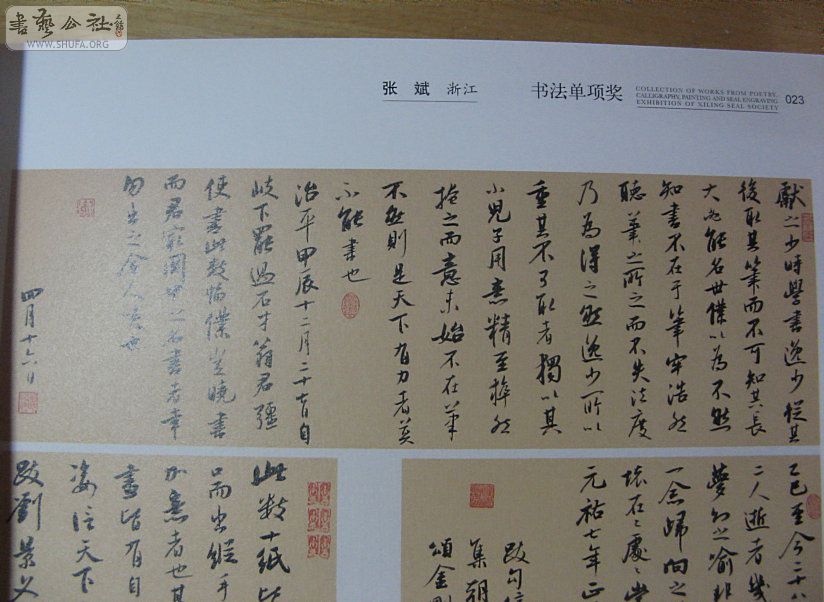 書藝公社
WWW.SHUFA.ORG
张 斌 浙江
书法单项奖
COLLECTION OF WORKS FROM POETRY,
CALLIGRAPHY, PAINTING AND SEAL ENGRAVING
EXHIBITION OF XILING SEAL SOCIETY
023
獻之少時學書逸少從其
後取其筆而不可知其長
大必能名世僕以為不然
知書不在于筆牢浩然
聽筆之所之而不失法度
乃為得之然逸少所以
重其不可取者獨以其
小兒子用意精至猝然
掩之而意未始不在筆
不然則是天下有力者莫
不能書也
治平甲辰十二月二十七日自
岐下罷過石才翁君彊
使書此數幅僕豈曉書
而君最關中之名書者幸
勿出之令人笑也
四月十六日
乙巳至今二十八
二人逝者幾
夢幻之喻非
一念歸向之
壞石之處
元祐七年正
集朝
頌金剛
此數十紙
口而出縱手
加意者也其
書皆有自
姿信天下
跋劉景文